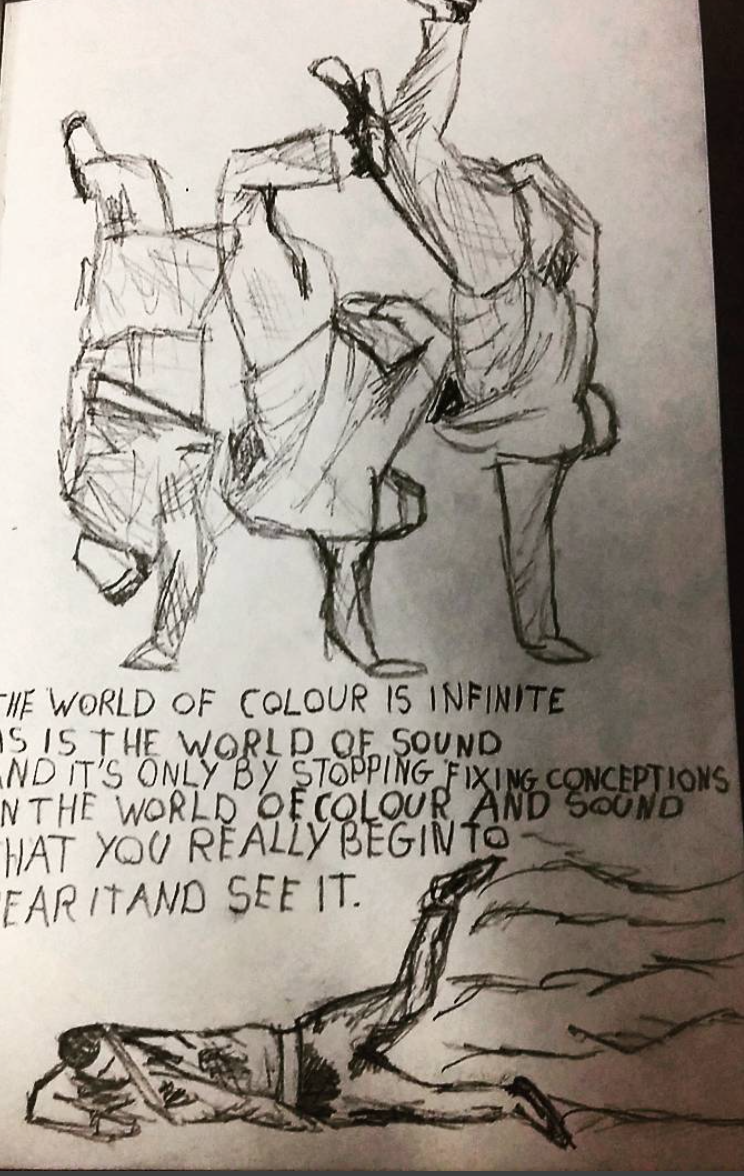 THE WORLD OF COLOUR IS INFINITE
AS IS THE WORLD OF SOUND
AND IT'S ONLY BY STOPPING FIXING CONCEPTIONS
IN THE WORLD OF COLOUR AND SOUND
THAT YOU REALLY BEGIN TO
HEAR IT AND SEE IT.